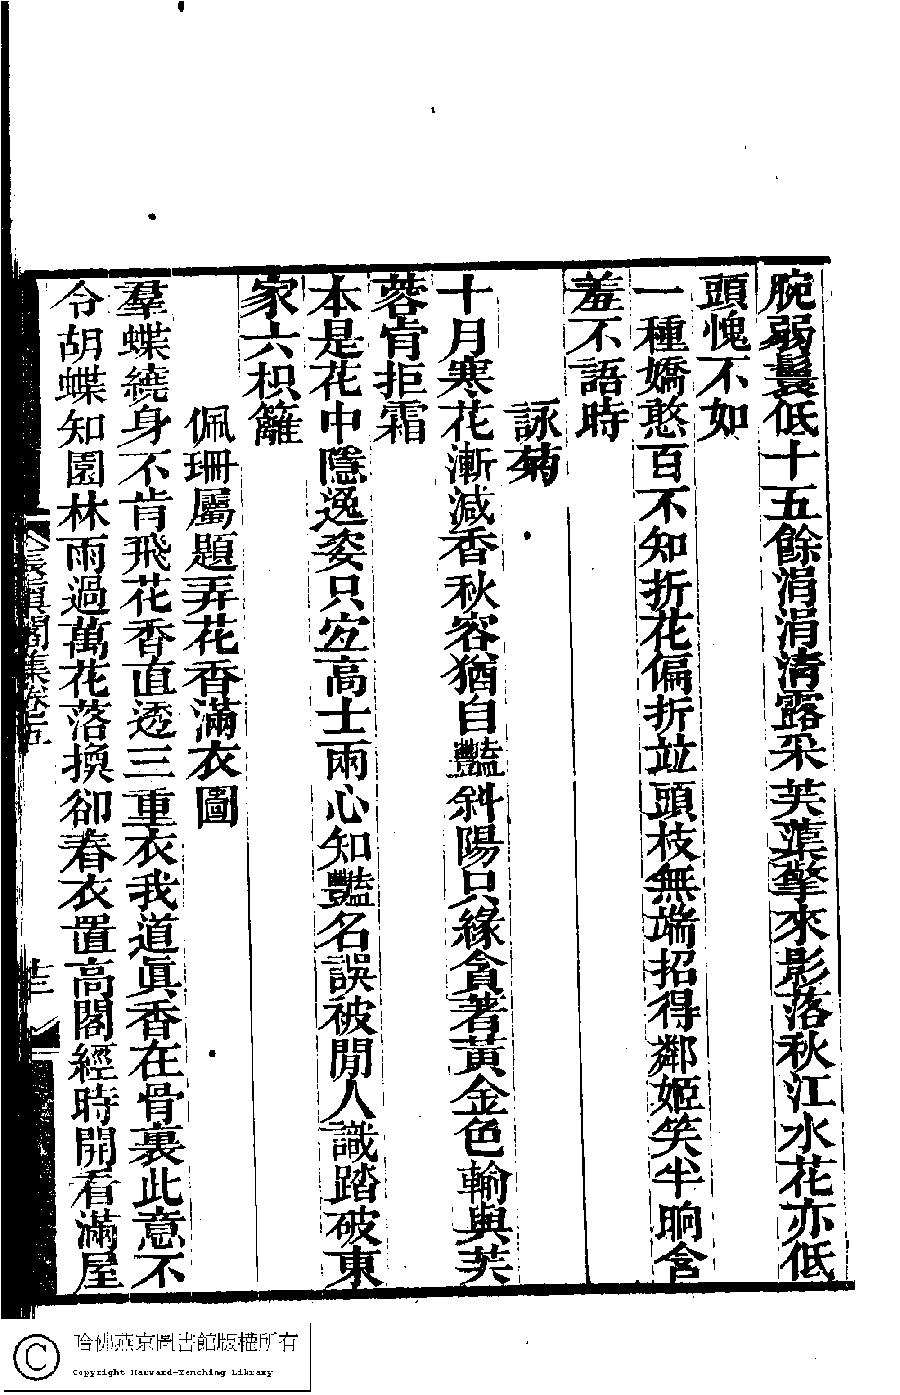 腕弱鬟低十五餘涓涓淸露采芙蕖擎來影落秋江水花亦低
頭愧不如
一種嬌憨百不知折花偏折竝頭枝無端招得鄰姬笑半晌含
羞不語時
詠菊
十月寒花漸減香秋容猶自豔斜陽只緣貪著黃金色輸與芙
蓉肯拒霜
本是花中隱逸姿只宐高士兩心知豔名誤被閒人識踏破東
家六枳籬
佩珊屬題弄花香滿衣圖
羣蝶繞身不肯飛花香直透三重衣我道眞香在骨裏此意不
令胡蝶知園林雨過萬花落換卻春衣置高閣經時開看滿屋
長眞閣集卷五
十三
哈佛燕京圖書館版權所有
Copyright Harvard-Yenching Library